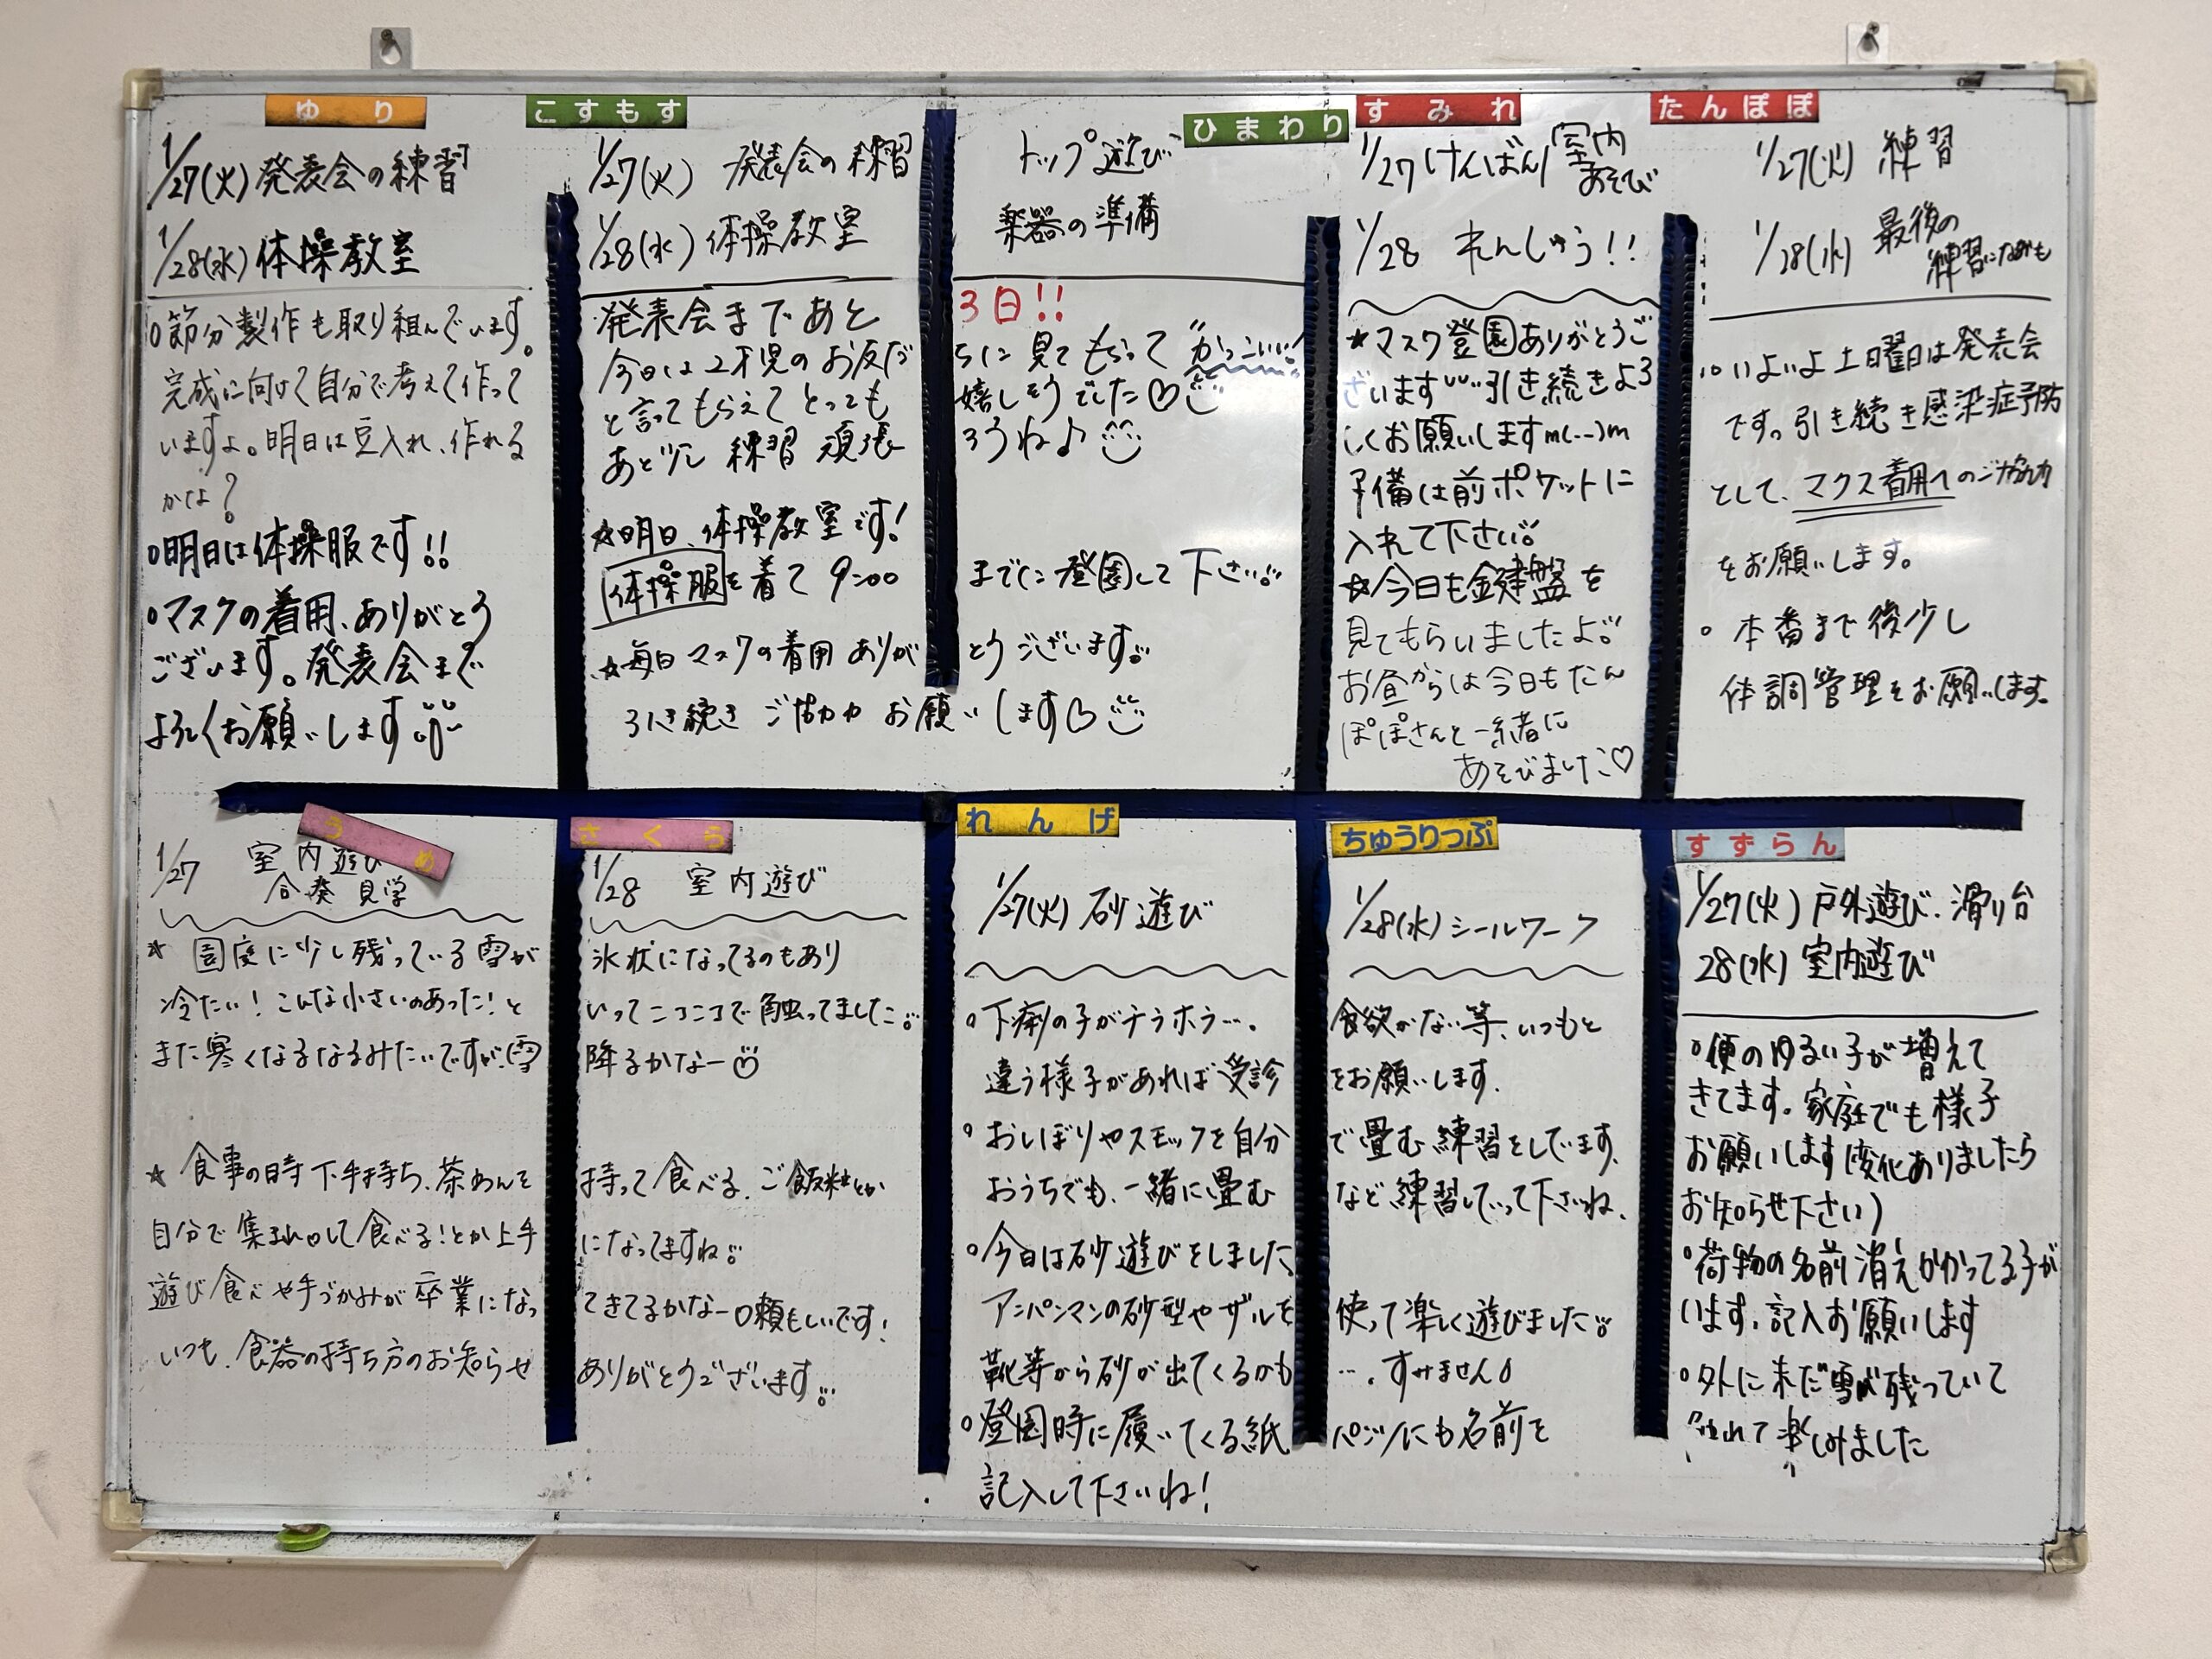 ゆり
1/27(火)発表会の練習
1/28(水)体操教室
○節分製作も取り組んでいます。
完成に向けて自分で考えて作って
いますよ。明日は豆入れ、作れる
かな?
○明日は体操服です!!
○マスクの着用、ありがとう
ございます。発表会まで
よろしくお願いします
こすもす
ひまわり
1/27(火) 発表会の練習 トップ遊び
1/28(水) 体操教室 楽器の準備
発表会まであと 3日!!
今日は2才児のお友だ ちに見てもらって "かっこいい!"
と言ってもらえてとっても 嬉しそうでした♡
あと少し練習頑張 ろうね♪
☆明日、体操教室です!
体操服を着て9:00 までに登園して下さい
☆毎日マスクの着用ありが とうございます
引き続きご協力お願いします♡
すみれ
1/27 けんばん/室内あそび
1/28 れんしゅう!!
★マスク登園ありがとうご
ざいます 引き続きよろ
しくお願いしますm(..)m
予備は前ポケットに
入れて下さい
☆今日も鍵盤を
見てもらいましたよ
お昼からは今日もたん
ぽぽさんと一緒に
あそびました♡
たんぽぽ
1/27(火) 練習
1/28(水) 最後の
練習になるかも
○いよいよ土曜日は発表会
です。引き続き感染症予防
として、マクス着用へのご協力
をお願いします。
○本番まで後少し
体調管理をお願いします。
うめ
さくら
1/27 室内遊び 1/28 室内遊び
合奏見学
★園庭に少し残っている雪が 氷状になってるのもあり
冷たい!こんな小さいのあった!と いってニコニコで触ってました
また寒くなるなるみたいですが、雪 降るかなー
★食事の時下手持ち、茶わんを 持って食べる、ご飯粒とか
自分で集まれして食べる!とか上手 になってますね
遊び食べや手づかみが卒業になっ てきてるかなー頼もしいです!
いつも、食器の持ち方のお知らせ ありがとうございます
れんげ
ちゅうりっぷ
1/27(火) 砂遊び 1/28(水) シールワーク
○下痢の子がチラホラ…。 食欲がない等、いつもと
違う様子があれば受診 をお願いします。
○おしぼりやスモックを自分 で畳む練習をしています。
おうちでも、一緒に畳む など練習していって下さいね、
○今日は砂遊びをしました。
アンパンマンの砂型やザルを 使って楽しく遊びました
靴等から砂が出てくるかも …。すみません
○登園時に履いてくる紙 パンツにも名前を
記入して下さいね!
すずらん
1/27(火) 戸外遊び、滑り台
28(水) 室内遊び
○便のゆるい子が増えて
きてます。家庭でも様子
お願いします(変化ありましたら
お知らせ下さい)
○荷物の名前消えかかってる子が
います、記入お願いします
○外に未だ雪が残っていて
触れて楽しみました